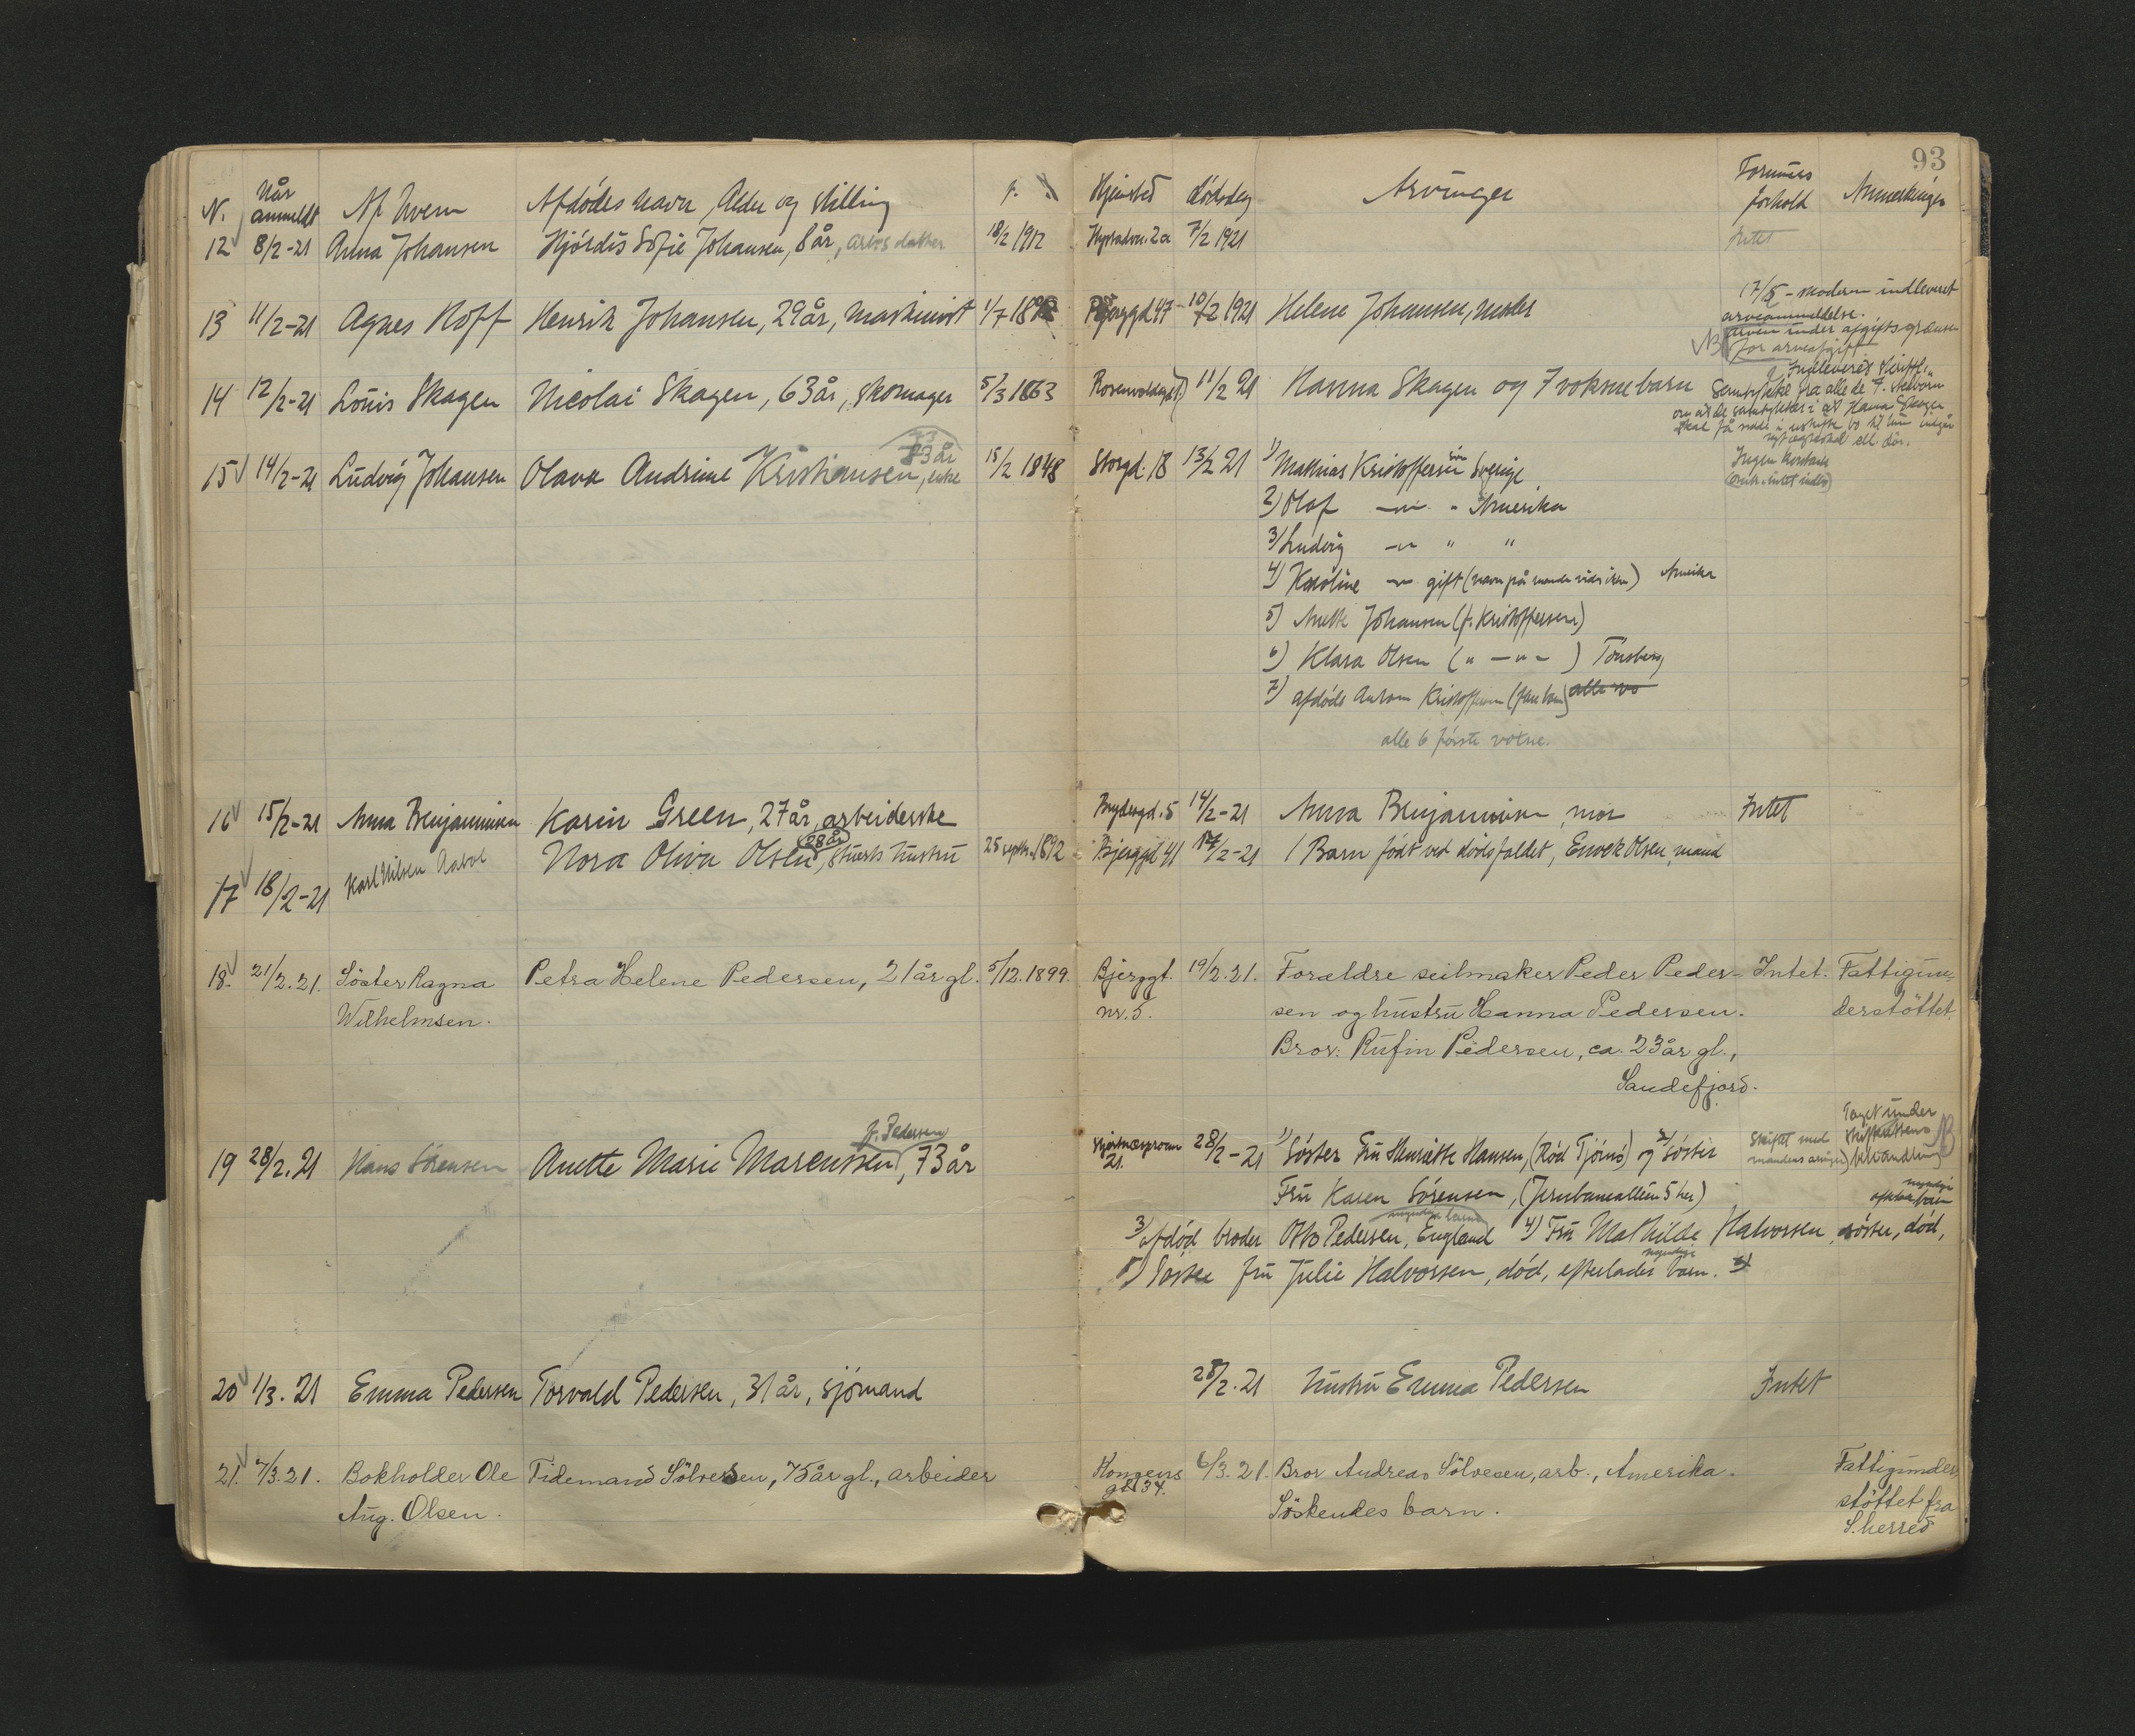 93
N. Når anmeldt Af hvem Afdødes navn, Alder og stilling f. Hjemsted dødsdag Arvinger Formues forhold Anmerkninger
12 8/2-21 Anna Johansen Hjørdis Sofie Johansen, 8 år, arb.s datter 18/2 1912 2a 7/2 1921 Intet
13 11/2-21 Agnes Hoff Henrik Johansen, 29 år, maskinist 1/7 18 47 10/2 1921 Helene Johansen, moder
17/5 - moderen indleveret
arveanmeldelse.
arven under afgiftsgrænsen
NB for arveafgift
14 12/2-21 Louis Skagen Nicolai Skagen, 63 år, skomager 5/3 1863 11/2 21 Hanna Skagen og 7 voksne barn
Indleveres skriftl.
fra alle de 7
om at de samtykker i at Hanna Skagen
skal få sidde i uskifte bo til hun indgår
nyt egteskab ell. dør.
73 år
15 14/2-21 Ludvig Johansen Olava Andrine Kristiansen, enke 15/2 1848 Storgd. 18 13/2 21 1) Mathias Kristoffersen søn Sverige
Ingen
2) Olaf -"- " Amerika
3) Ludvig -"- " "
4) Karoline -"- gift (navn på manden vides ikke) Amerika
5) Anette Johansen (f. Kristoffersen)
6) Klara Olsen (" -"- ) Tønsberg
7) afdøde Anton Kristoffersen alle
alle 6 første voksne.
16 15/2-21 Anna Benjaminsen Karin Green, 27 år, arbeiderske 5 14/2-21 Anna Benjaminsen, mor Intet
28 år
17 18/2-21 Karl Nilsen Nora Oliva Olsen, stuerts hustru 25 septbr. 1892 Bjerggd 41 17/2-21 1 Barn født ved dødsfaldet, Enock Olsen, mand
18. 21/2.21. Söster Ragna Petra Helene Pedersen, 21 år gl. 5/12.1899. Bjerggt. 19/2.21. Forældre seilmaker Peder Peder- Intet. Fattigun-
Wilhelmsen. nr. 5. sen og hustru Hanna Pedersen. derstöttet.
Bror: Rufin Pedersen, ca. 23 år gl.,
Sandefjord.
f. Pedersen
19 28/2.21 Hans Sørensen Anette Marie Marcussen, 73 år 21. 28/2-21 1) Søster Fru Henriette Hansen, (Rød Tjømø) og 2) søster
Skiftet med mandens arvinger
Taget under skifterettens behandling
Fru Karen Sørensen, (Jernbanealleen 5 her)
myndige barn
3) afdød broder Otto Pedersen, England 4) Fru Mathilde Halvorsen, søster, død,
myndige
5) Søster fru Julie Halvorsen, død, efterlader barn.
20 1/3.21 Emma Pedersen Torvald Pedersen, 31 år, sjømand 28/2.21 hustru Emma Pedersen Intet
21. 7/3.21. Bokholder Ole Tidemand Sölvesen, 75 år gl., arbeider Kongens 6/3.21. Bror Andreas Sölvesen, arb., Amerika. Fattigunder-
Aug. Olsen. gt. 34. Söskendes barn. stöttet fra
S.herred